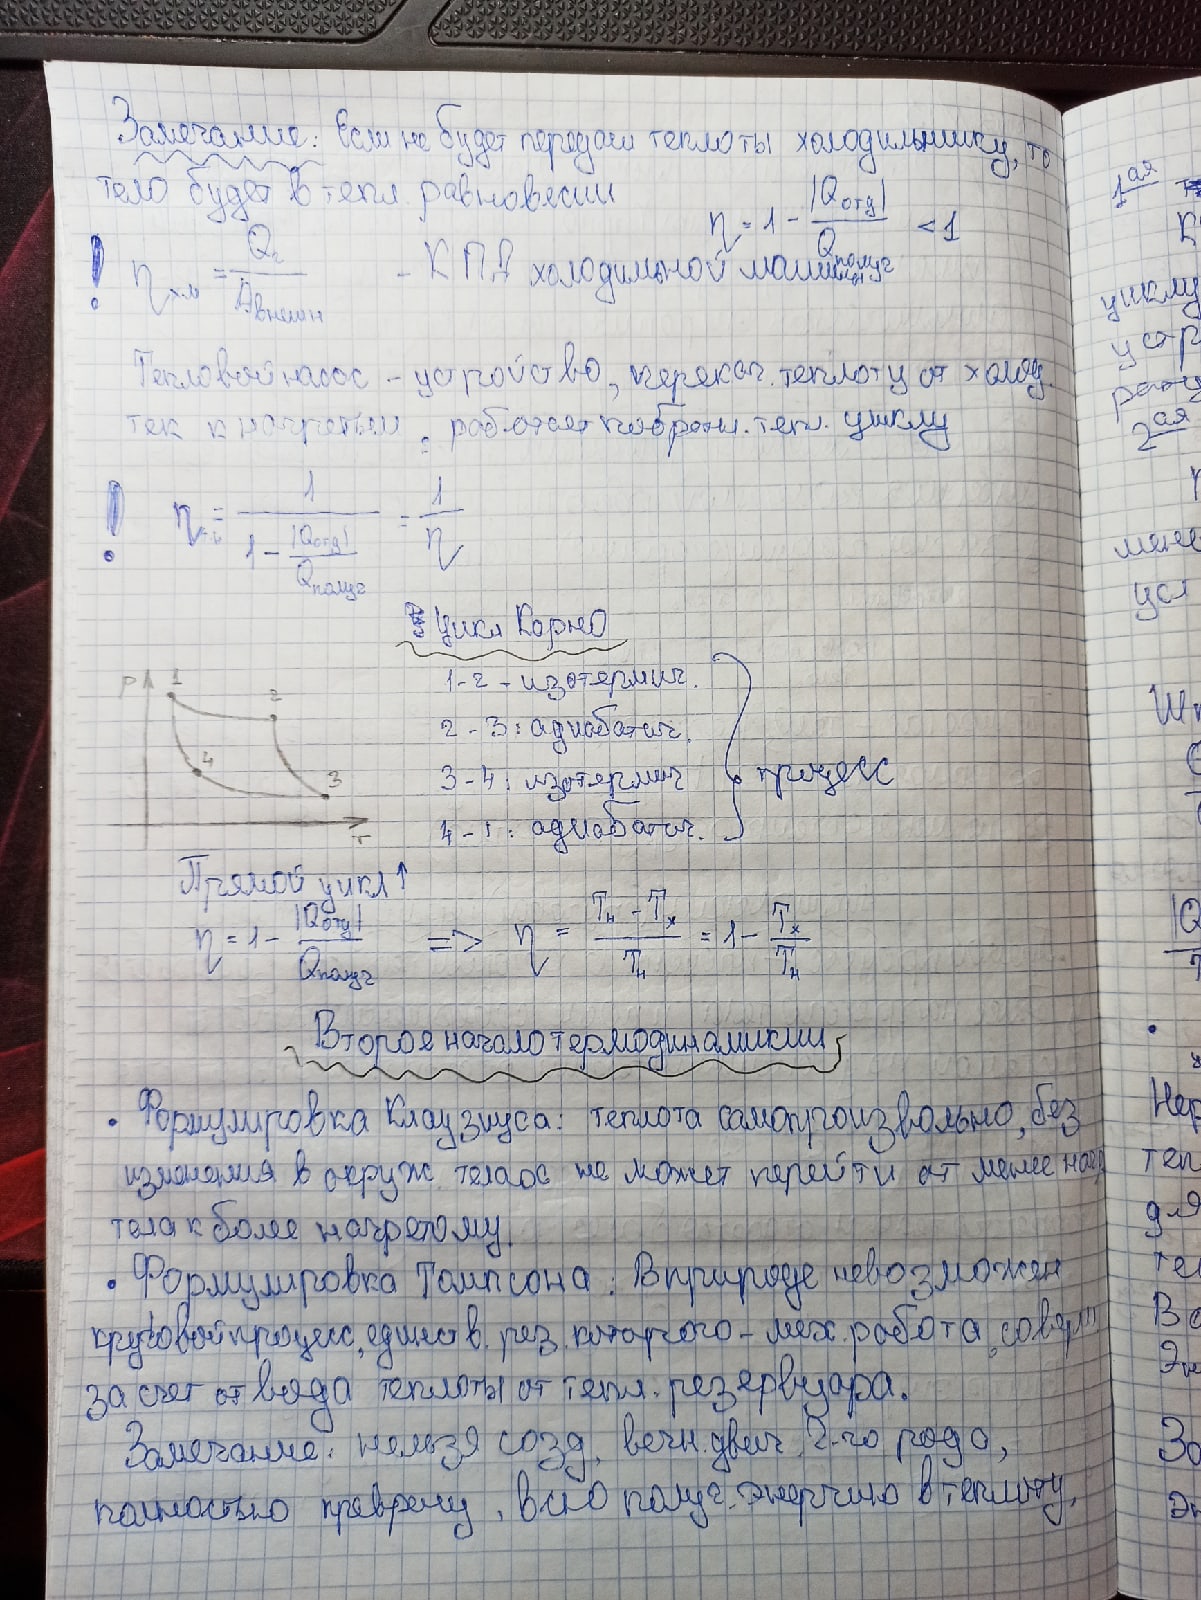 Замечание: Если не будет передачи теплоты холодильнику, то
тело будет в тепл. равновесии
η = 1 - |Qотд| / Qполуч < 1
! ηхм = Q2 / Aвнешн - КПД холодильной машины
Тепловой насос - устройство, перекач. теплоту от холод.
тел к нагретым. работает по обратн. тепл. циклу
! ηтн = 1 / (1 - |Qотд| / Qполуч) = 1 / η
Цикл Карно
1-2 - изотермич.
2-3: адиабатич.
3-4: изотермич
4-1: адиабатич.
процесс
P 1 2 4 3
Прямой цикл ↑
η = 1 - |Qотд| / Qполуч => η = (Tн - Tх) / Tн = 1 - Tх / Tн
Второе начало термодинамики
• Формулировка Клаузиуса: теплота самопроизвольно, без
изменения в окруж. телах не может перейти от менее нагр
тела к более нагретому.
• Формулировка Томпсона: В природе невозможен
круговой процесс, единств. рез. которого - мех. работа, соверш
за счет отвода теплоты от тепл. резервуара.
Замечание: нельзя созд. вечн. двиг. 2-го рода,
полностью превращ. всю получ. энергию в теплоту.
1ая
цикму
устр
2ая
мене
усл
|Q
•
тел
для
тел
В с
Эн
За
эн